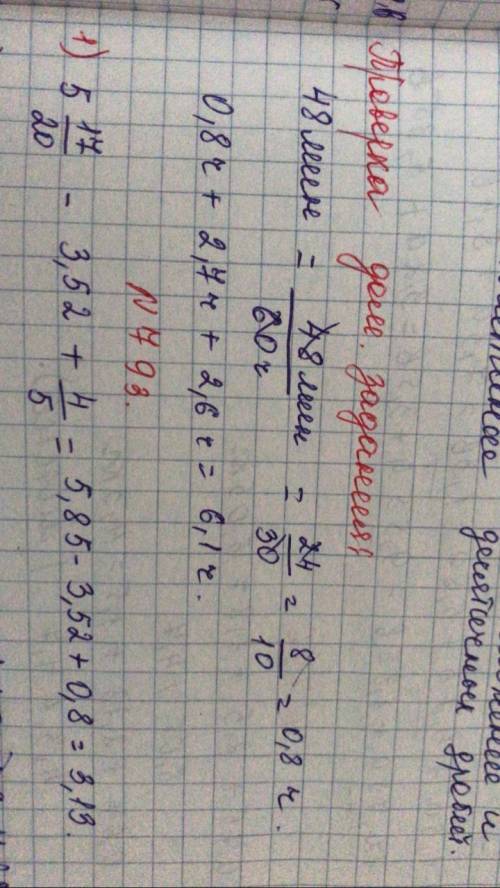 десятичных дробей.
Проверка дом. задания:
48 мин = 48 мин/60 ч = 24/30 = 8/10 = 0,8 ч.
0,8 ч + 2,7 ч + 2,6 ч = 6,1 ч.
N 793.
1) 5 17/20 - 3,52 + 4/5 = 5,85 - 3,52 + 0,8 = 3,13.